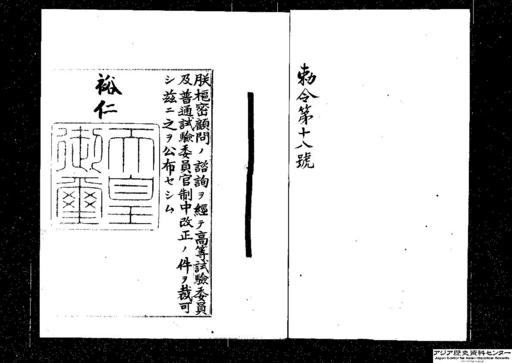 勅令第十八號
朕樞密顧問ノ諮詢ヲ經テ高等試驗委員
及普通試驗委員官制中改正ノ件ヲ裁可
シ茲ニ之ヲ公布セシム
裕仁
天皇
御璽
アジア歴史資料センター
Japan Center for Asian Historical Records